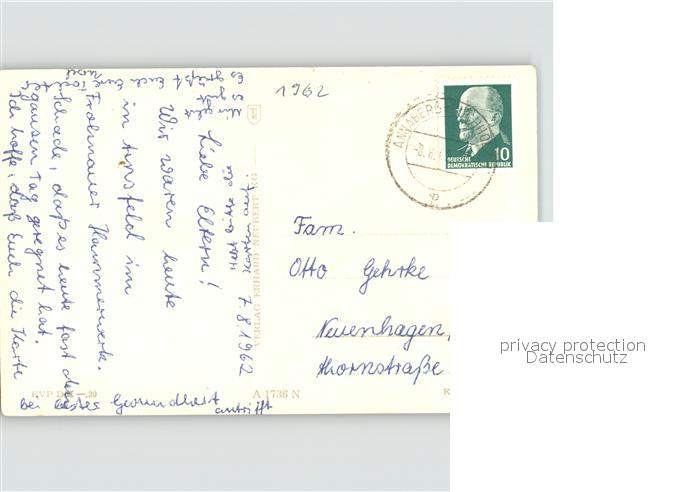 1962
ANNABERG
DEUTSCHE
DEMOKRATISCHE REPUBLIK
10
7.8.1962
Liebe Eltern!
Wir waren heute
in Annsfeld im
Frohnauer Hammerwerk.
Schade, daß es heute fast den
ganzen Tag geregnet hat.
Ich hoffe, daß Euch die Karte
bei bester Gesundheit
antrifft
Es grüßt Euch Eure
VERLAG ERHARD NEUBERT KG
Fam.
Otto Gehrke
Neuenhagen,
Ahornstraße
EVP DM —,20
A 1736 N
privacy protection
Datenschutz